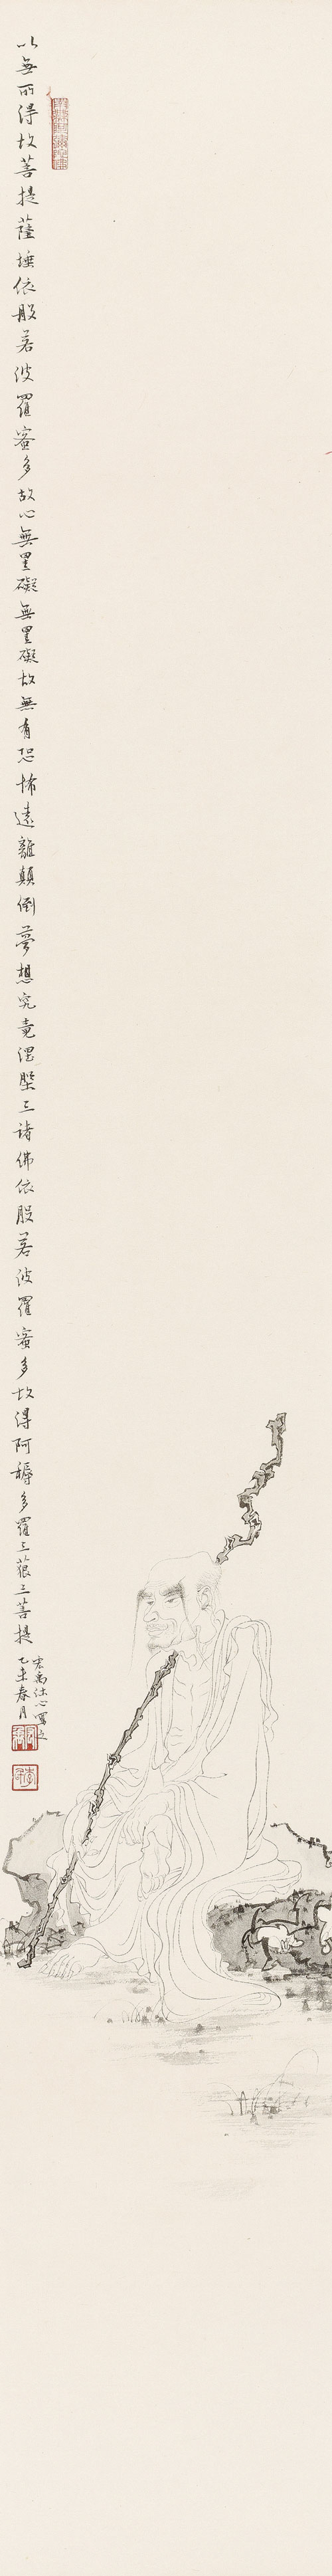 以無所得故菩提薩埵依般若波羅蜜多故心無罣礙無罣礙故無有恐怖遠離顛倒夢想究竟涅槃三諸佛依般若波羅蜜多故得阿耨多羅三藐三菩提
沐心寫之
乙未春月